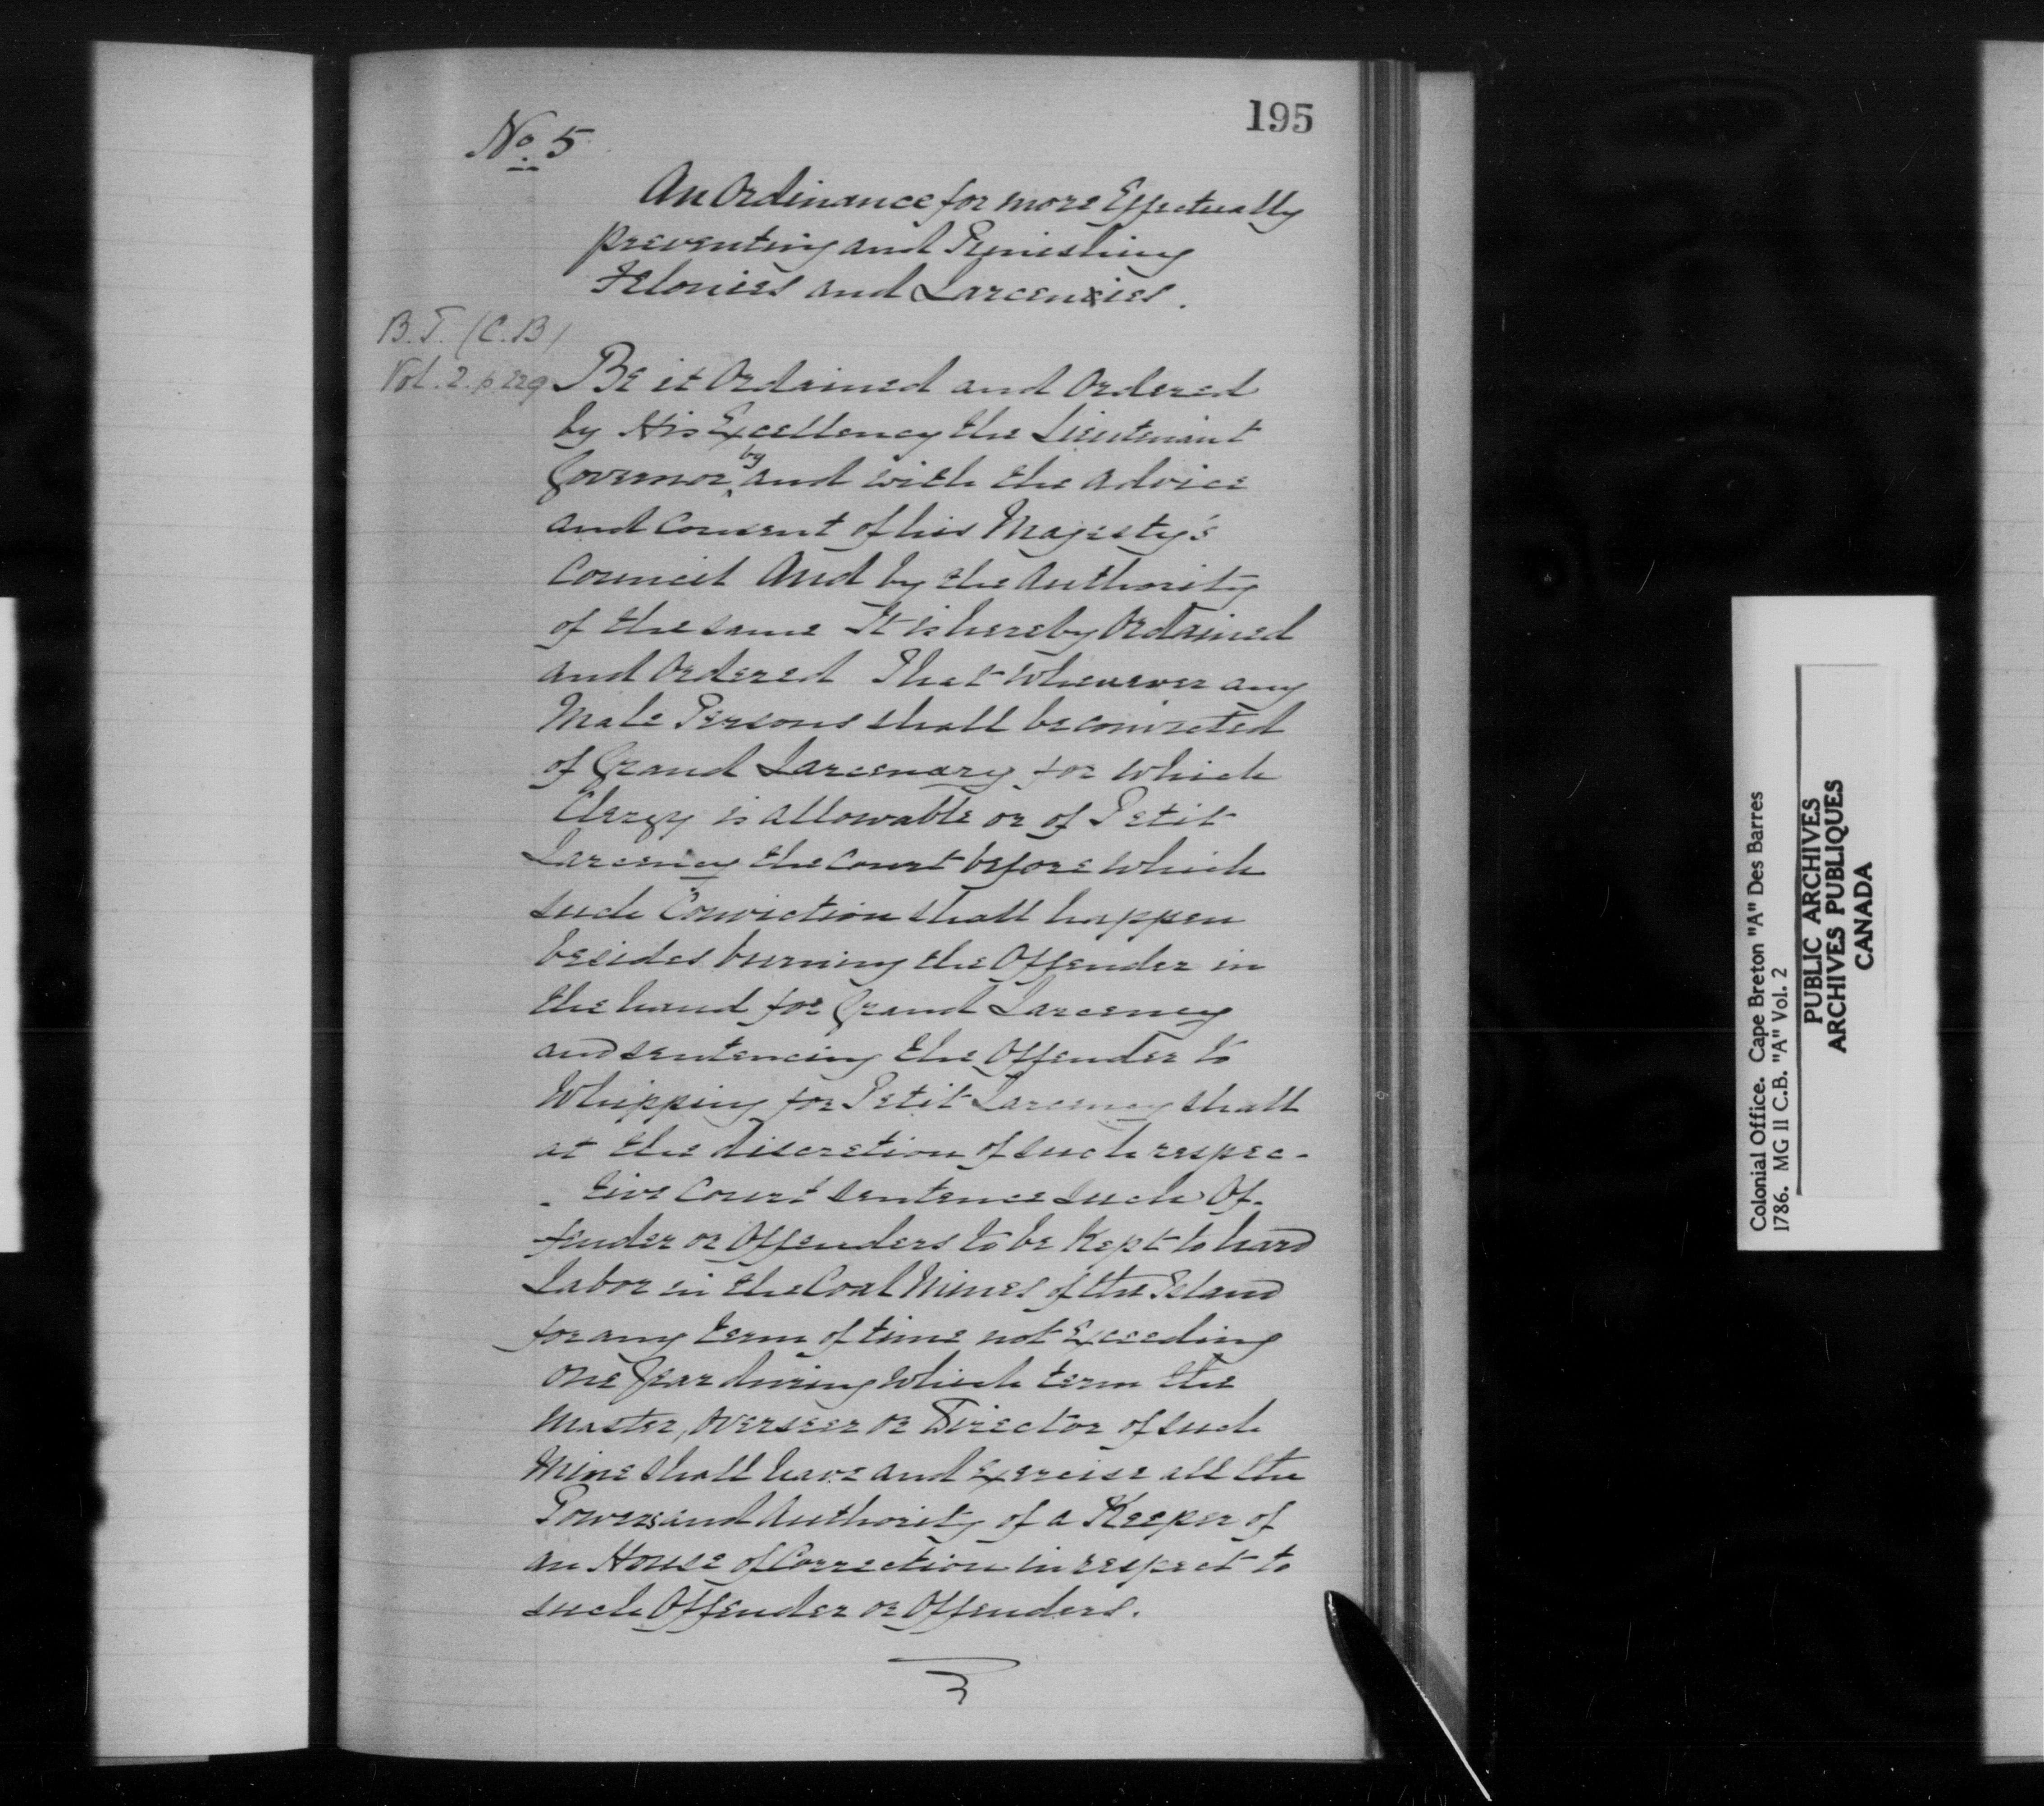 195
No. 5
An Ordinance for more Effectually
preventing and Punishing
Felonies and Larcenies.
B.T. (C.B)
Vol. 2. p. 229
Be it Ordained and Ordered
by His Excellency the Lieutenant
Governor, by and with the advice
and Consent of his Majesty's
Council And by the Authority
of the same It is hereby Ordained
and Ordered That whenever any
Male Persons shall be convicted
of Grand Larcenary for which
Clergy is allowable or of Petit
Larceney the Court before which
such Conviction shall happen
besides burning the Offender in
the hand for Grand Larceney
and sentencing the Offender to
Whipping for Petit Larceney shall
at the discretion of such respec-
-tive Court sentence such Of-
fender or Offenders to be Kept to hard
Labor in the Coal Mines of the Island
for any term of time not Exceeding
One Year during which term the
Master, Overseer or Director of such
Mine shall have and Exercise all the
Powers and Authority of a Keeper of
an House of Correction in respect to
such Offender or Offenders.
Colonial Office. Cape Breton "A" Des Barres
1786. MG 11 C.B. "A" Vol. 2
PUBLIC ARCHIVES
ARCHIVES PUBLIQUES
CANADA